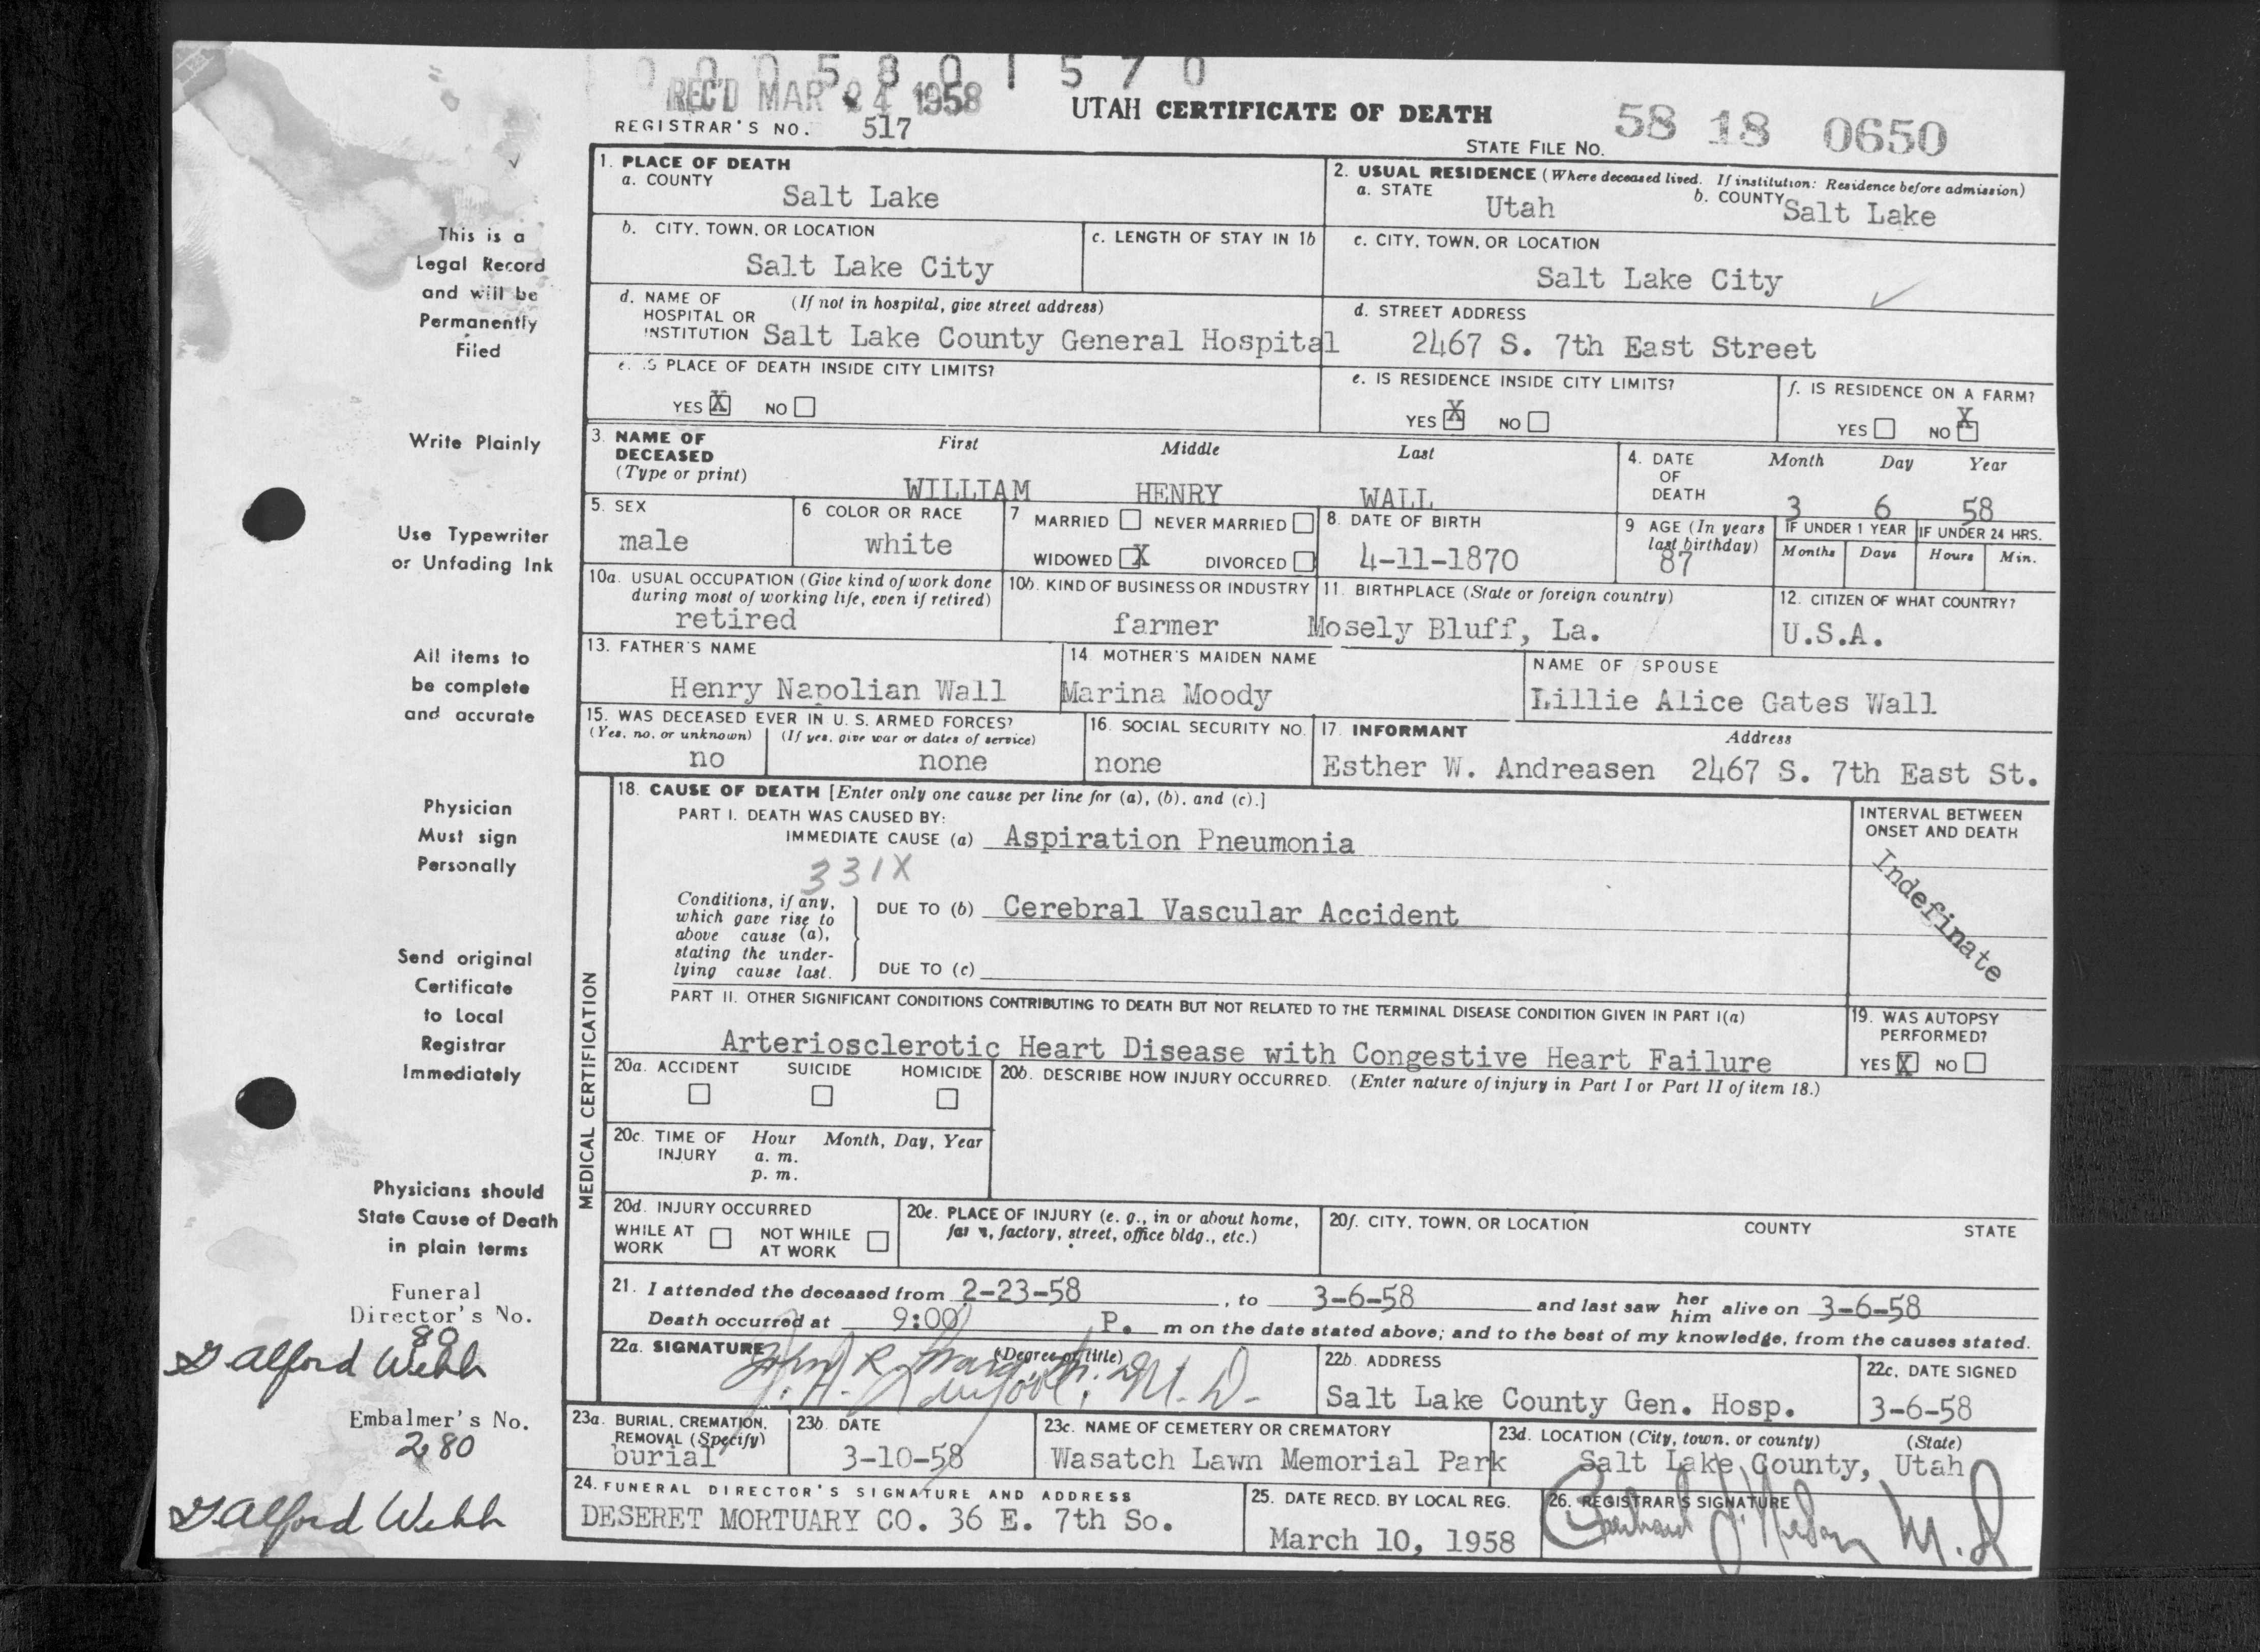 0 0 0 5 8 0 1 5 7 0
REC'D MAR 24 1958
UTAH CERTIFICATE OF DEATH
REGISTRAR'S NO. 517
STATE FILE NO. 58 18 0650
This is a
Legal Record
and will be
Permanently
Filed
Write Plainly
Use Typewriter
or Unfading Ink
All items to
be complete
and accurate
Physician
Must sign
Personally
Send original
Certificate
to Local
Registrar
Immediately
Physicians should
State Cause of Death
in plain terms
Funeral
Director's No.
80
Embalmer's No.
280
1. PLACE OF DEATH
a. COUNTY
Salt Lake
2. USUAL RESIDENCE (Where deceased lived. If institution: Residence before admission)
a. STATE Utah b. COUNTY Salt Lake
b. CITY, TOWN, OR LOCATION
Salt Lake City
c. LENGTH OF STAY IN 1b
c. CITY, TOWN, OR LOCATION
Salt Lake City
d. NAME OF (If not in hospital, give street address)
HOSPITAL OR
INSTITUTION Salt Lake County General Hospital
d. STREET ADDRESS
2467 S. 7th East Street
e. IS PLACE OF DEATH INSIDE CITY LIMITS?
YES X NO
e. IS RESIDENCE INSIDE CITY LIMITS?
YES X NO
f. IS RESIDENCE ON A FARM?
YES NO X
3. NAME OF DECEASED First Middle Last
(Type or print)
WILLIAM HENRY WALL
4. DATE OF DEATH Month Day Year
3 6 58
5. SEX
male
6 COLOR OR RACE
white
7 MARRIED NEVER MARRIED
WIDOWED X DIVORCED
8. DATE OF BIRTH
4-11-1870
9 AGE (In years
last birthday)
87
IF UNDER 1 YEAR IF UNDER 24 HRS.
Months Days Hours Min.
10a. USUAL OCCUPATION (Give kind of work done
during most of working life, even if retired)
retired
10b. KIND OF BUSINESS OR INDUSTRY
farmer
11. BIRTHPLACE (State or foreign country)
Mosely Bluff, La.
12. CITIZEN OF WHAT COUNTRY?
U.S.A.
13. FATHER'S NAME
Henry Napolian Wall
14 MOTHER'S MAIDEN NAME
Marina Moody
NAME OF SPOUSE
Lillie Alice Gates Wall
15. WAS DECEASED EVER IN U. S. ARMED FORCES?
(Yes, no, or unknown) (If yes, give war or dates of service)
no none
16. SOCIAL SECURITY NO.
none
17. INFORMANT Address
Esther W. Andreasen 2467 S. 7th East St.
MEDICAL CERTIFICATION
18. CAUSE OF DEATH [Enter only one cause per line for (a), (b), and (c).]
PART I. DEATH WAS CAUSED BY:
IMMEDIATE CAUSE (a) Aspiration Pneumonia
331X
Conditions, if any,
which gave rise to
above cause (a),
stating the under-
lying cause last.
DUE TO (b) Cerebral Vascular Accident
DUE TO (c)
INTERVAL BETWEEN
ONSET AND DEATH
Indefinate
PART II. OTHER SIGNIFICANT CONDITIONS CONTRIBUTING TO DEATH BUT NOT RELATED TO THE TERMINAL DISEASE CONDITION GIVEN IN PART I(a)
Arteriosclerotic Heart Disease with Congestive Heart Failure
19. WAS AUTOPSY
PERFORMED?
YES X NO
20a. ACCIDENT SUICIDE HOMICIDE
20b. DESCRIBE HOW INJURY OCCURRED. (Enter nature of injury in Part I or Part II of item 18.)
20c. TIME OF INJURY Hour Month, Day, Year
a. m.
p. m.
20d. INJURY OCCURRED
WHILE AT WORK NOT WHILE AT WORK
20e. PLACE OF INJURY (e. g., in or about home,
factory, street, office bldg., etc.)
20f. CITY, TOWN, OR LOCATION COUNTY STATE
21. I attended the deceased from 2-23-58, to 3-6-58 and last saw her him alive on 3-6-58
Death occurred at 9:00 P. m on the date stated above; and to the best of my knowledge, from the causes stated.
22a. SIGNATURE (Degree or title)
M.D.
22b. ADDRESS
Salt Lake County Gen. Hosp.
22c. DATE SIGNED
3-6-58
23a. BURIAL, CREMATION,
REMOVAL (Specify)
burial
23b. DATE
3-10-58
23c. NAME OF CEMETERY OR CREMATORY
Wasatch Lawn Memorial Park
23d. LOCATION (City, town, or county) (State)
Salt Lake County, Utah
24. FUNERAL DIRECTOR'S SIGNATURE AND ADDRESS
DESERET MORTUARY CO. 36 E. 7th So.
25. DATE RECD. BY LOCAL REG.
March 10, 1958
26. REGISTRAR'S SIGNATURE
M.D.
Alford Webb
Alford Webb